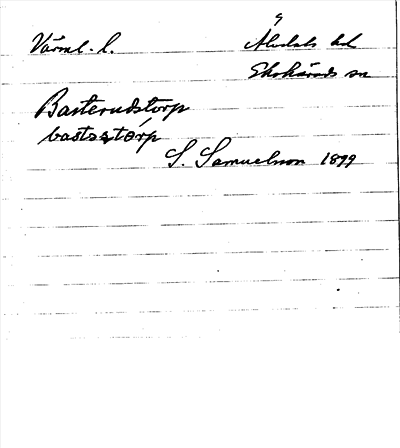 Värml. l.
Älvdals hd
Ekshärads sn
Basterudstorp
bastsstórp
S. Samuelsson 1899